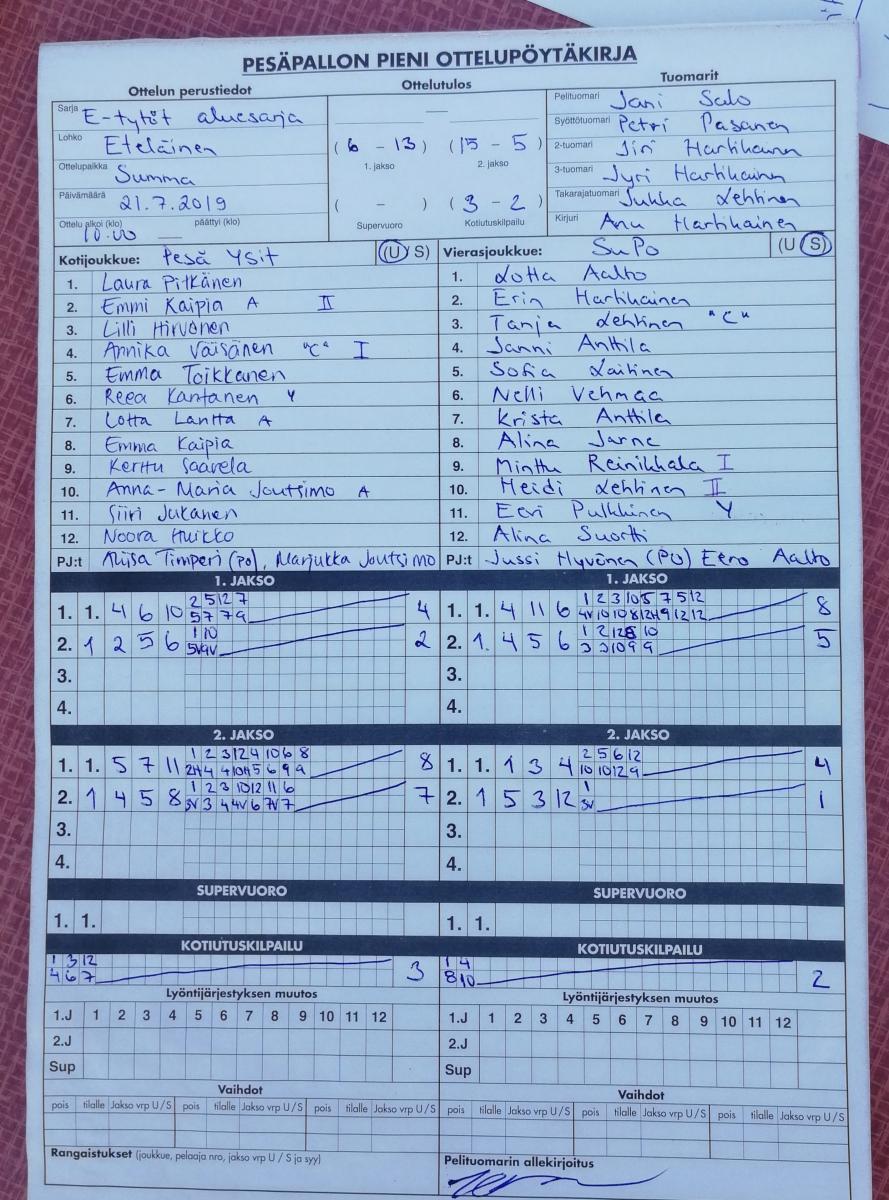 PESÄPALLON PIENI OTTELUPÖYTÄKIRJA
Ottelun perustiedot
Sarja E-tytöt aluesarja
Lohko Eteläinen
Ottelupaikka Summa
Päivämäärä 21.7.2019
Ottelu alkoi (klo) päättyi (klo)
10.00 —
Ottelutulos
(6 - 13) (15 - 5)
1. jakso 2. jakso
( - ) (3 - 2)
Supervuoro Kotiutuskilpailu
Tuomarit
Pelituomari Jani Salo
Syöttötuomari Petri Pasanen
2-tuomari Jiri Hartikainen
3-tuomari Jyri Hartikainen
Takarajatuomari Jukka Lehtinen
Kirjuri Anu Hartikainen
Kotijoukkue: Pesä Ysit (U S)
1. Laura Pitkänen
2. Emmi Kaipia A II
3. Lilli Hirvonen
4. Annika Väisänen "C" I
5. Emma Toikkanen
6. Reea Kantanen Y
7. Lotta Lantta A
8. Emma Kaipia
9. Kerttu Saarela
10. Anna-Maria Joutsimo A
11. Siiri Jukanen
12. Noora Huikko
PJ:t Aliisa Timperi (PO), Marjukka Joutsimo
Vierasjoukkue: SuPo (U S)
1. Lotta Aalto
2. Erin Hartikainen
3. Tanja Lehtinen "C"
4. Janni Anttila
5. Sofia Laitinen
6. Nelli Vehmaa
7. Krista Anttila
8. Alina Jarne
9. Minttu Reinikkala I
10. Heidi Lehtinen II
11. Eevi Pulkkinen Y
12. Alina Suortti
PJ:t Jussi Hyvönen (PO) Eero Aalto
1. JAKSO
2 5 12 7
1. 1. 4 6 10 4
5 7 7 9
1 10
2. 1 2 5 6 2
5V 9V
3.
4.
1. JAKSO
1 2 3 10 5 7 5 12
1. 1. 4 11 6 8
2. 1. 4 5 6 5
3.
4.
2. JAKSO
1 2 3 12 4 10 6 8
1. 1. 5 7 11 8
1 2 3 10 12 11 6
2. 1 4 5 8 7
3V 3 4 4V 6 7V 7
3.
4.
2. JAKSO
2 5 6 12
1. 1. 1 3 4 4
10 10 12 9
1
2. 1 5 3 12 1
3V
3.
4.
SUPERVUORO
1. 1.
SUPERVUORO
1. 1.
KOTIUTUSKILPAILU
1 3 12
4 6 7 3
KOTIUTUSKILPAILU
1 4
8 10 2
Lyöntijärjestyksen muutos
1.J 1 2 3 4 5 6 7 8 9 10 11 12
2.J
Sup
Lyöntijärjestyksen muutos
1.J 1 2 3 4 5 6 7 8 9 10 11 12
2.J
Sup
Vaihdot
pois tilalle Jakso vrp U / S pois tilalle Jakso vrp U / S pois tilalle Jakso vrp U / S
Vaihdot
pois tilalle Jakso vrp U / S pois tilalle Jakso vrp U / S pois tilalle Jakso vrp U / S
Rangaistukset (joukkue, pelaaja nro, jakso vrp U / S ja syy)
Pelituomarin allekirjoitus